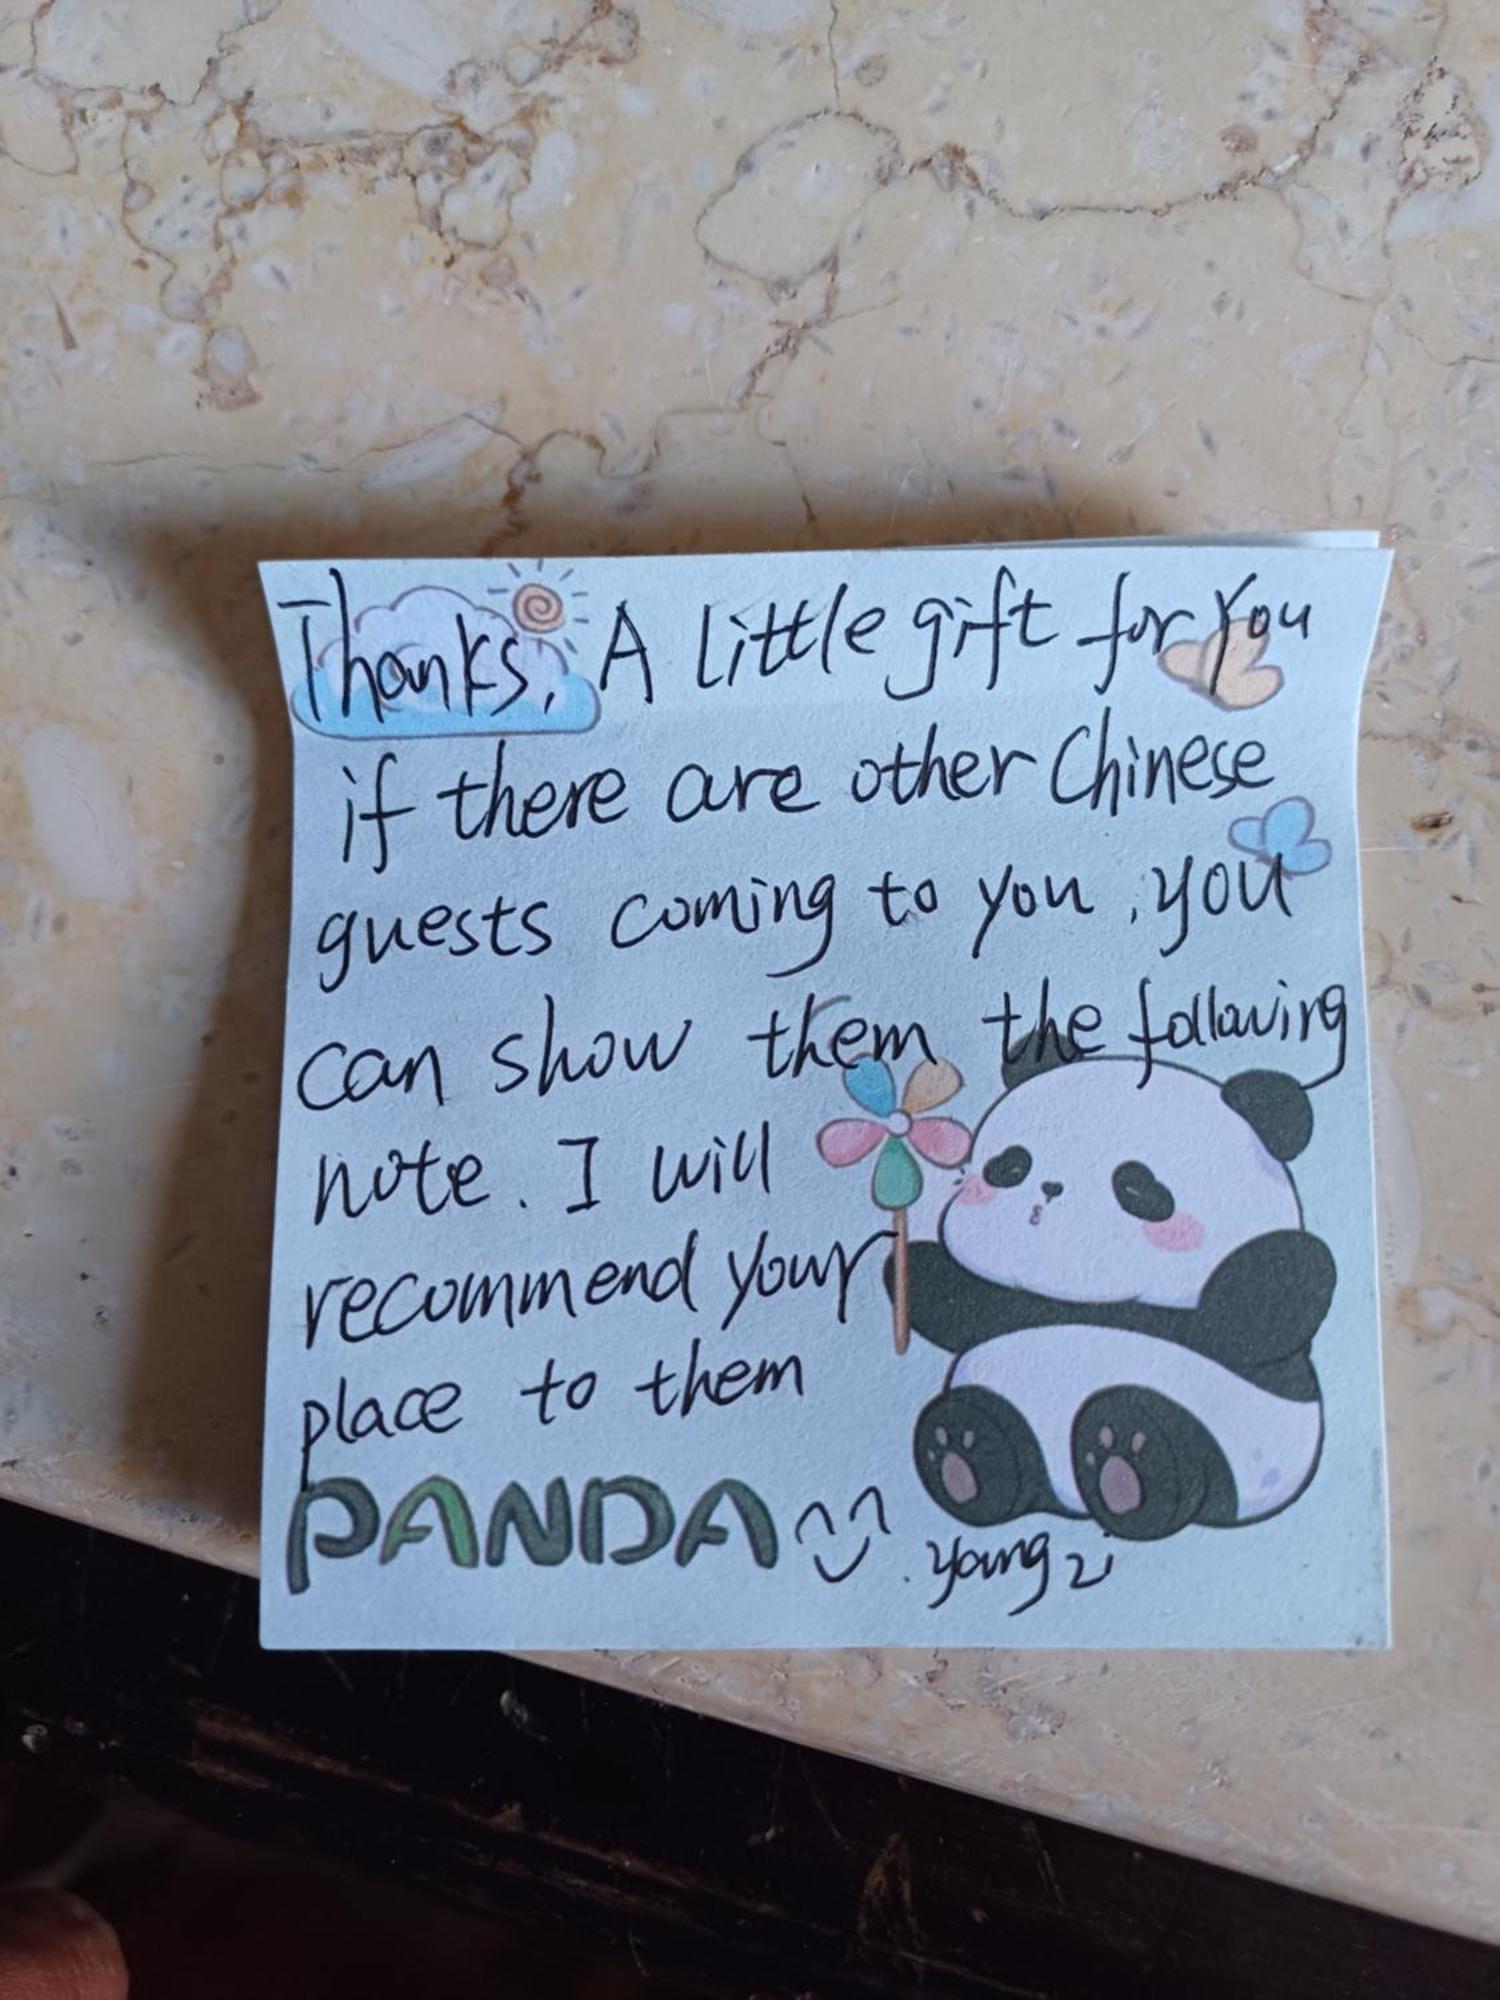 Thanks, A little gift for you
if there are other Chinese
guests coming to you, you
can show them the following
note. I will
recommend your
place to them
PANDA